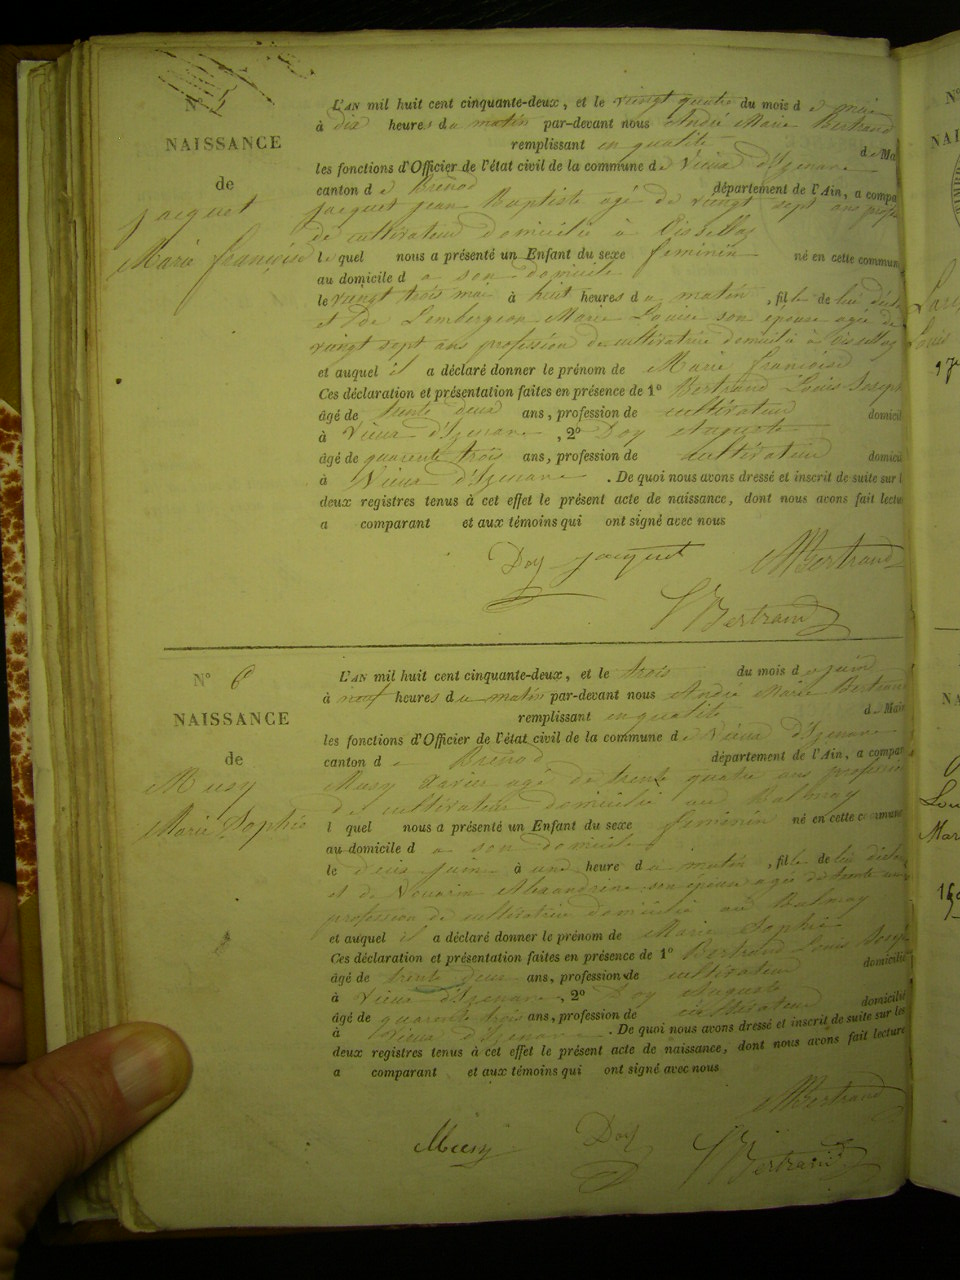 N° 5
NAISSANCE
de
jacquet
Marie françoise
L'AN mil huit cent cinquante-deux, et le vingt quatre du mois d e mai
à dix heures du matin par-devant nous André Marie Bertrand
remplissant en qualité de Ma
les fonctions d'Officier de l'état civil de la commune de Vieux d'Izenave
canton d e Brénod département de l'Ain, a compa
jacquet jean Baptiste agé de vingt sept ans profes
de cultivateur domicilié à
le quel nous a présenté un Enfant du sexe féminin né en cette commun
au domicile d a son domicile
le vingt trois mai à huit heures du matin, fille de lui décl
et de Marie Louise son épouse agée de
vingt sept ans profession de cultivatrice domicilié à
et auquel il a déclaré donner le prénom de Marie françoise
Ces déclaration et présentation faites en présence de 1° Bertrand Louis Joseph
âgé de trente deux ans, profession de cultivateur domicil
à Vieux d'Izenave, 2° Doy Auguste
âgé de quarente trois ans, profession de cultivateur domici
à Vieux d'Izenave. De quoi nous avons dressé et inscrit de suite sur l
deux registres tenus à cet effet le présent acte de naissance, dont nous avons fait lectu
a comparant et aux témoins qui ont signé avec nous
Doy jacquet AMBertrand
LBertrand
N° 6
NAISSANCE
de
Musy
Marie Sophie
L'AN mil huit cent cinquante-deux, et le trois du mois de juin
à neuf heures du matin par-devant nous André Marie Bertrand
remplissant en qualité de Mair
les fonctions d'Officier de l'état civil de la commune de Vieux d'Izenave
canton d e Brénod département de l'Ain, a compar
Musy Xavier agé de trente quatre ans profession
de cultivateur domicilié au Balmay
l quel nous a présenté un Enfant du sexe féminin né en cette commune
au domicile d a son domicile
le deux juin à une heure du matin, fille de lui déclar
et de Alexandrine son épouse agée de trente
profession de cultivatrice domicilié au Balmay
et auquel il a déclaré donner le prénom de Marie Sophie
Ces déclaration et présentation faites en présence de 1° Bertrand Louis Joseph
âgé de trente deux ans, profession de cultivateur domicilié
à Vieux d'Izenave, 2° Doy Auguste
âgé de quarente trois ans, profession de cultivateur domicilié
à Vieux d'Izenave. De quoi nous avons dressé et inscrit de suite sur les
deux registres tenus à cet effet le présent acte de naissance, dont nous avons fait lecture
a comparant et aux témoins qui ont signé avec nous
AMBertrand
Musy Doy LBertrand